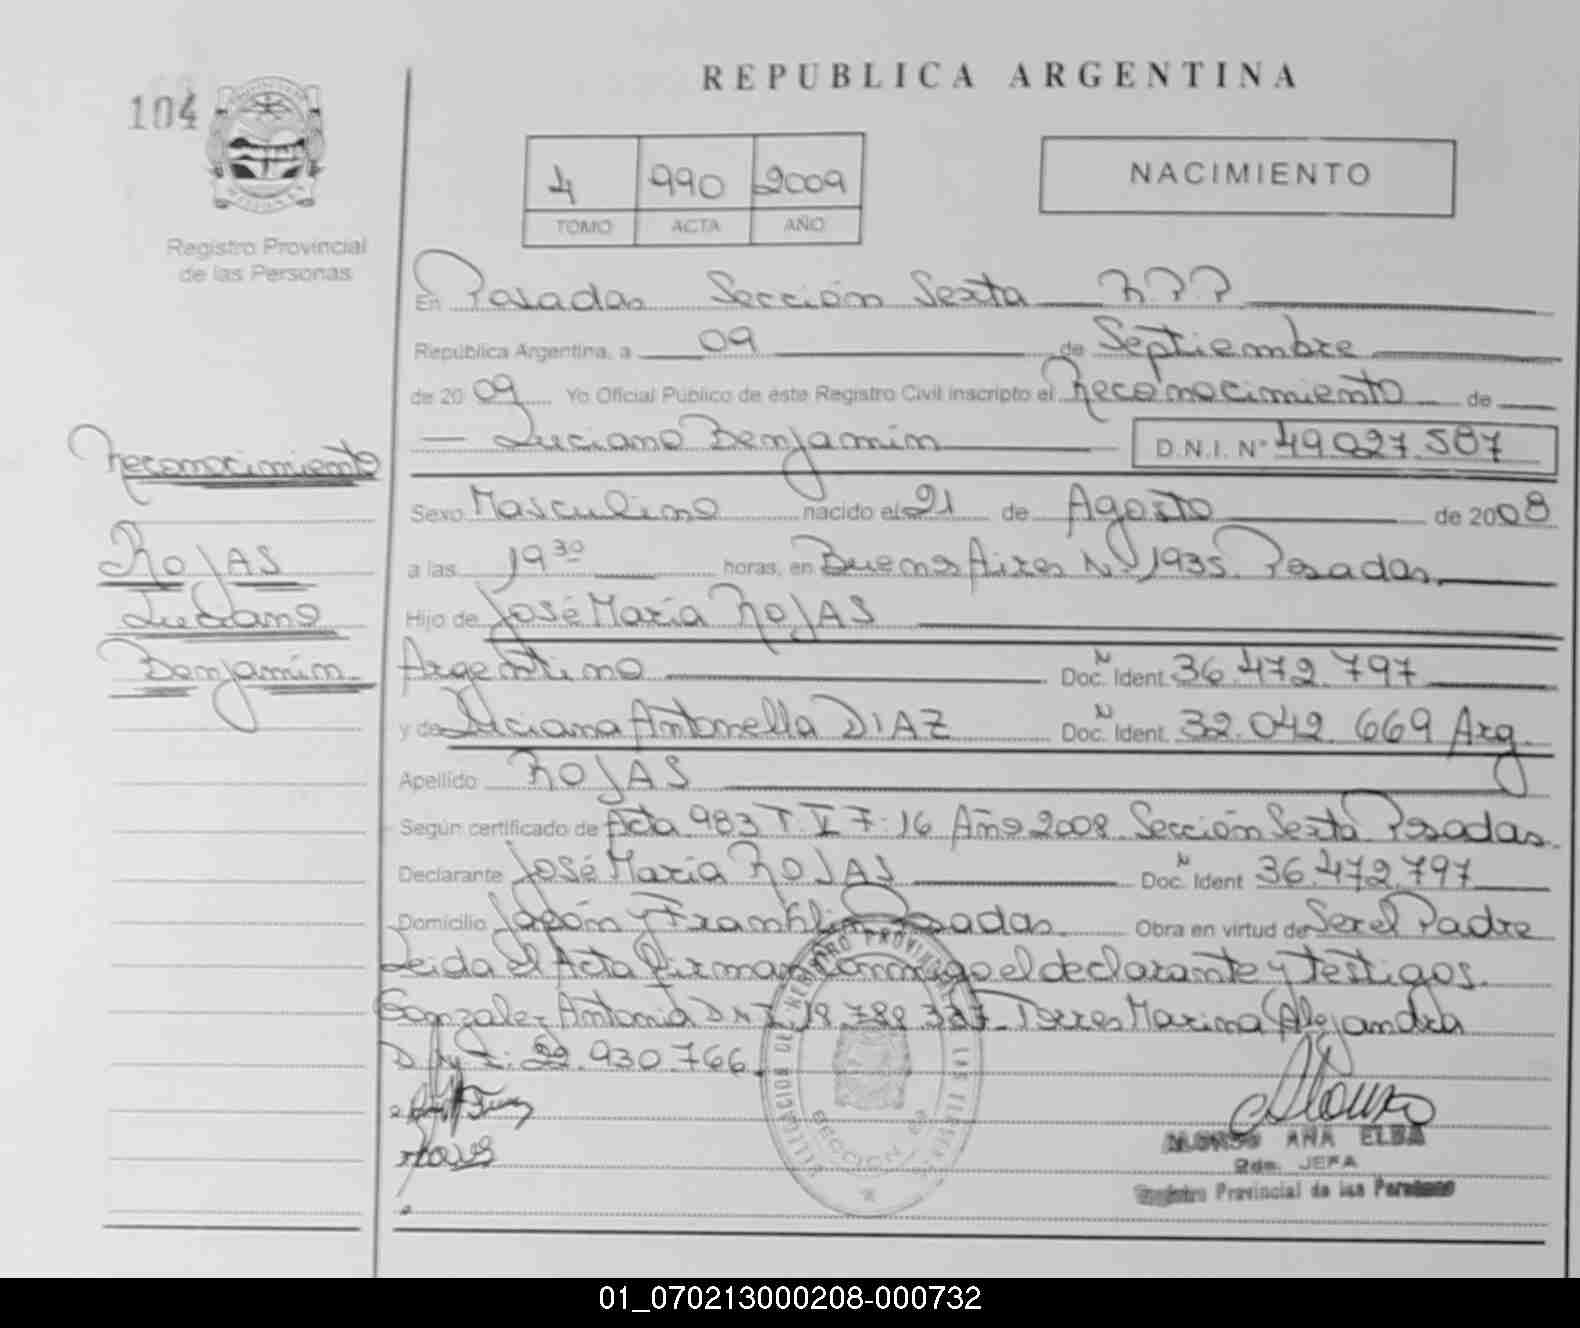 104
REPUBLICA ARGENTINA
4 990 2009
TOMO ACTA AÑO
NACIMIENTO
Registro Provincial
de las Personas
En Posadas Sección Sexta R.P.P
República Argentina, a 09 de Septiembre
de 2009 Yo Oficial Público de éste Registro Civil inscripto el Reconocimiento de
Luciano Benjamín D.N.I. Nº 49.027.587
Reconocimiento
ROJAS
Luciano
Benjamín
Sexo Masculino nacido el 21 de Agosto de 2008
a las 19 30 horas, en Buenos Aires Nº 1935. Posadas.
Hijo de José María ROJAS
Argentino Doc. Ident. 36.472.797
y de Luciana Antonella DIAZ Doc. Ident. 32.042.669 Arg.
Apellido ROJAS
Según certificado de Acta 983 T. V F. 16 Año 2008 Sección Sexta Posadas.
Declarante José María ROJAS Doc. Ident 36.472.797
Domicilio Japón y Franklin Posadas. Obra en virtud de Ser el Padre
Leida el Acta firman conmigo el declarante y testigos.
Gonzalez Antonia D N I 18.789.337 Torres Marina Alejandra
D.N.I: 930.766.
DELEGACION DEL REGISTRO PROVINCIAL DE LAS PERSONAS
SECCION
ALONSO ANA ELBA
JEFA
Registro Provincial de las Personas
01_070213000208-000732